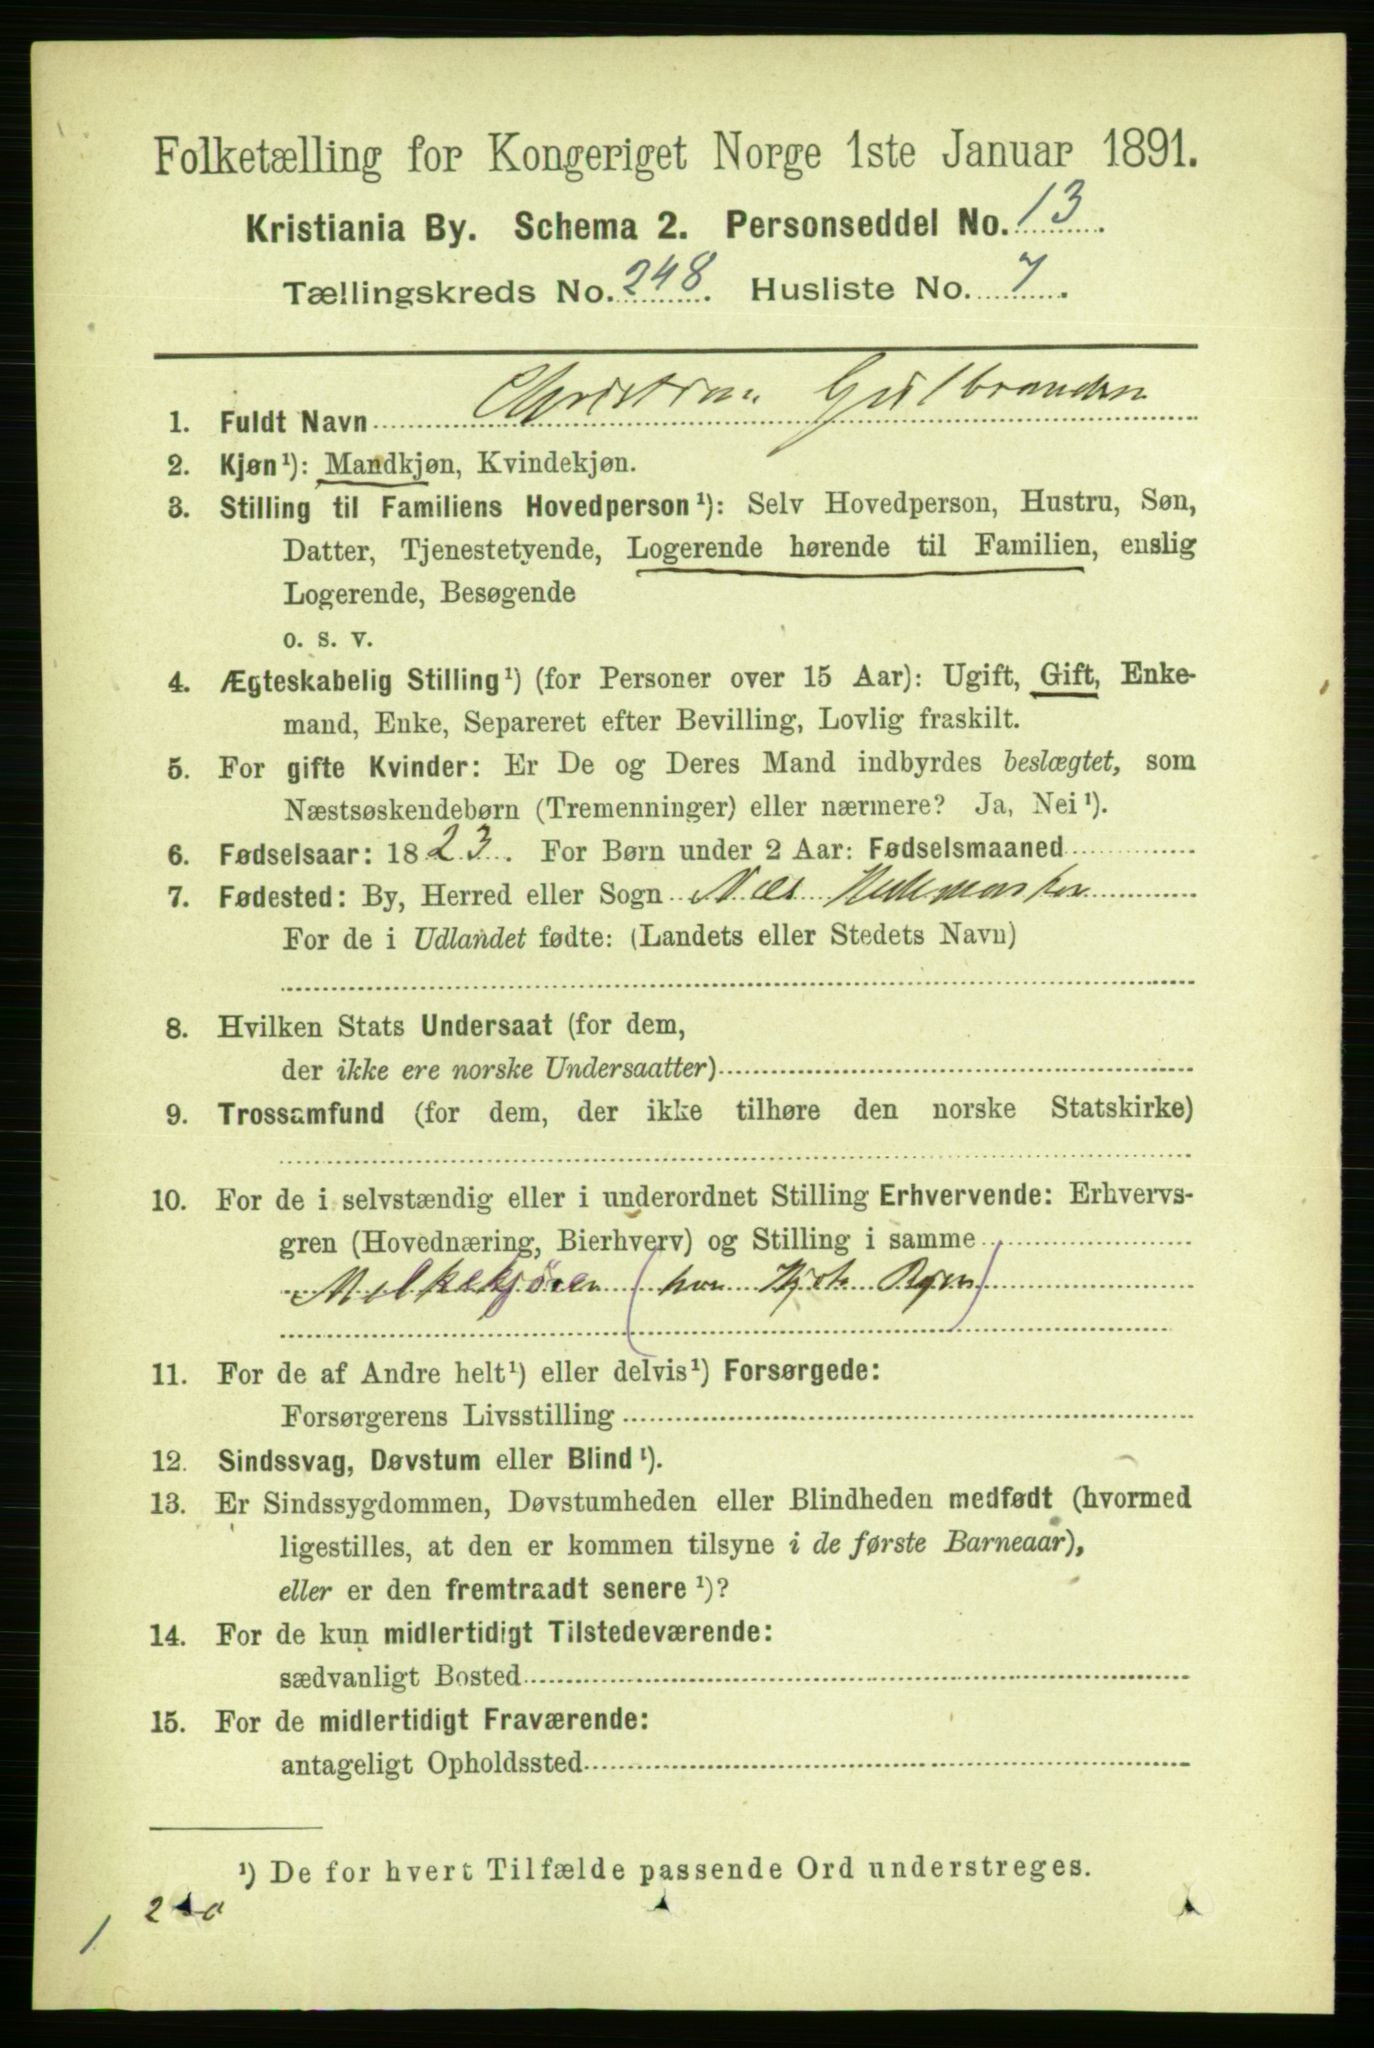 Folketælling for Kongeriget Norge 1ste Januar 1891.
Kristiania By. Schema 2. Personseddel No. 13.
Tællingskreds No. 248. Husliste No. 7.
1. Fuldt Navn Christian Gulbrandsen
2. Kjøn¹): Mandkjøn, Kvindekjøn.
3. Stilling til Familiens Hovedperson¹): Selv Hovedperson, Hustru, Søn,
Datter, Tjenestetyende, Logerende hørende til Familien, enslig
Logerende, Besøgende
o. s. v.
4. Ægteskabelig Stilling¹) (for Personer over 15 Aar): Ugift, Gift, Enke-
mand, Enke, Separeret efter Bevilling, Lovlig fraskilt.
5. For gifte Kvinder: Er De og Deres Mand indbyrdes beslægtet, som
Næstsøskendebørn (Tremenninger) eller nærmere? Ja, Nei¹).
6. Fødselsaar: 1823. For Børn under 2 Aar: Fødselsmaaned
7. Fødested: By, Herred eller Sogn Næs Hedemarken
For de i Udlandet fødte: (Landets eller Stedets Navn)
8. Hvilken Stats Undersaat (for dem,
der ikke ere norske Undersaatter)
9. Trossamfund (for dem, der ikke tilhøre den norske Statskirke)
10. For de i selvstændig eller i underordnet Stilling Erhvervende: Erhvervs-
gren (Hovednæring, Bierhverv) og Stilling i samme
Melkekjører (hos
11. For de af Andre helt¹) eller delvis¹) Forsørgede:
Forsørgerens Livsstilling
12. Sindssvag, Døvstum eller Blind¹).
13. Er Sindssygdommen, Døvstumheden eller Blindheden medfødt (hvormed
ligestilles, at den er kommen tilsyne i de første Barneaar),
eller er den fremtraadt senere¹)?
14. For de kun midlertidigt Tilstedeværende:
sædvanligt Bosted
15. For de midlertidigt Fraværende:
antageligt Opholdssted
¹) De for hvert Tilfælde passende Ord understreges.
1